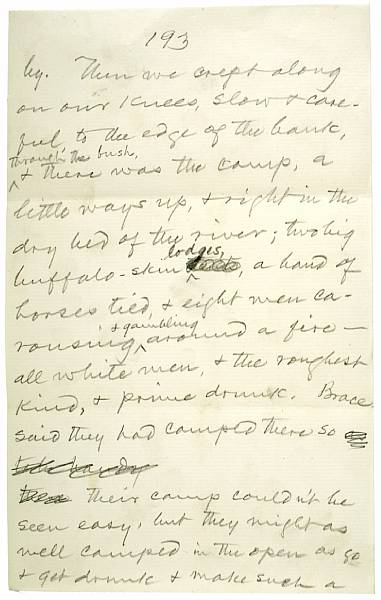 193
by. Then we crept along
on our knees, slow & care-
ful, to the edge of the bank,
through the bush,
& there was the camp, a
little ways up, & right in the
dry bed of the river; two big
lodges,
buffalo-skin, a band of
horses tied, & eight men ca-
& gambling
rousing around a fire—
all white men, & the roughest
kind, & prime drunk. Brace
said they had camped there so
Their camp couldn't be
seen easy, but they might as
well camped in the open as go
& get drunk & make such a